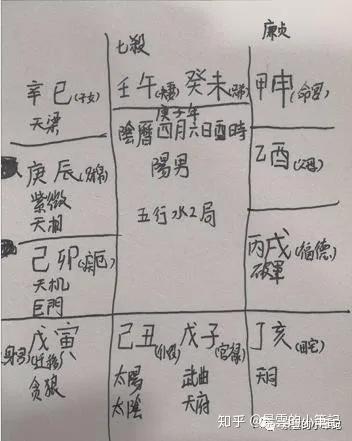 七殺
廉贞
辛巳(子女)
天梁
壬午(夫妻) 癸未(兄弟)
甲申(命宮)
庚子年
陰曆四月六日酉時
陽男
五行水2局
庚辰(财帛)
紫微
天相
乙酉(父母)
己卯(疾厄)
天机
巨門
丙戌(福德)
破軍
身宮 戊寅(迁移)
贪狼
己丑(仆役) 戊子(官禄)
太陽 武曲
太陰 天府
丁亥(田宅)
天同
知乎